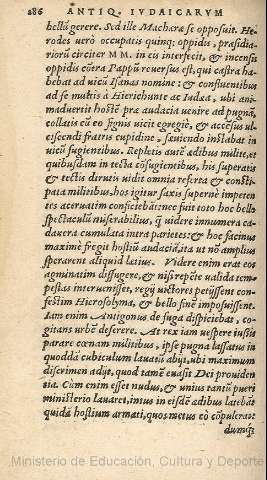 286 ANTIQ. IVDAICARVM
bellũ gerere. Sed ille Machæra se opposuit. He-
rodes verò occupatis quinq; oppidis, præsidia-
riorũ circiter MM. in eis interfecit, & incensis
oppidis cõtra Pappũ reuersus est, qui castra ha-
bebat ad vicũ Isanas nomine: & confluentibus
ad se multis à Hierichunte ac Iudæa, ubi ani-
maduertit hostẽ præ audacia uenire ad pugnã,
collatis cũ eo signis vicit egregiè, & accẽsus ul-
ciscendi fratris cupidine, sæuiendo instabat in
vicũ fugientibus. Repletis autẽ ædibus milite, et
quibusdam in tecta cõfugientibus, his superatis
& tectis dirutis vidit omnia referta & consti-
pata militibus, hos igitur saxis supernè impeten
tes aceruatim conficiebãt: nec fuit toto hoc bello
spectaculũ miserabilius, q̃ videre innumera ca-
dauera cumulata intra parietes: & hoc facinus
maximè fregit hostiũ audaciã, ita ut nõ amplius
sperarent aliquid lætius. Videre enim erat eos
agminatim diffugere, & nisi repẽte valida tem-
pestas interuenisset, regij uictores petijssent con-
festim Hierosolyma, & bello finẽ imposuissent.
Iam enim Antigonus de fuga dispiciebat, co-
gitans urbẽ deserere. At rex iam vespere iussis
parare cœnam militibus, ipse pugna lassatus in
quoddã cubiculum lauatũ abijt, ubi maximum
discrimen adijt, quod tamẽ euasit Dei prouiden
tia. Cùm enim esset nudus, & unius tantũ pueri
ministerio lauaret, intus in eisdẽ ædibus latebãt
quidã hostium armati, quos metus eò cõpulerat:
dumq;
Ministerio de Educación, Cultura y Deporte